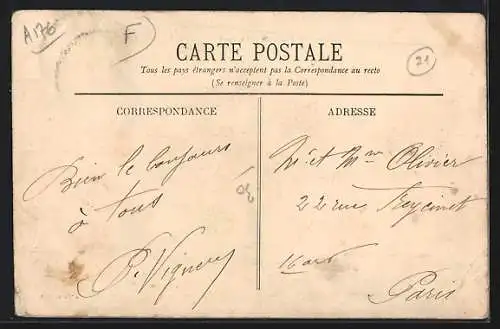 A176
F
CARTE POSTALE
21
Tous les pays étrangers n'acceptent pas la Correspondance au recto
(Se renseigner à la Poste)
CORRESPONDANCE
Bien le bonjours
à tous
P. Vigne
ADRESSE
Mr et Mme Olivier
22 rue Freycinet
16 ard
Paris